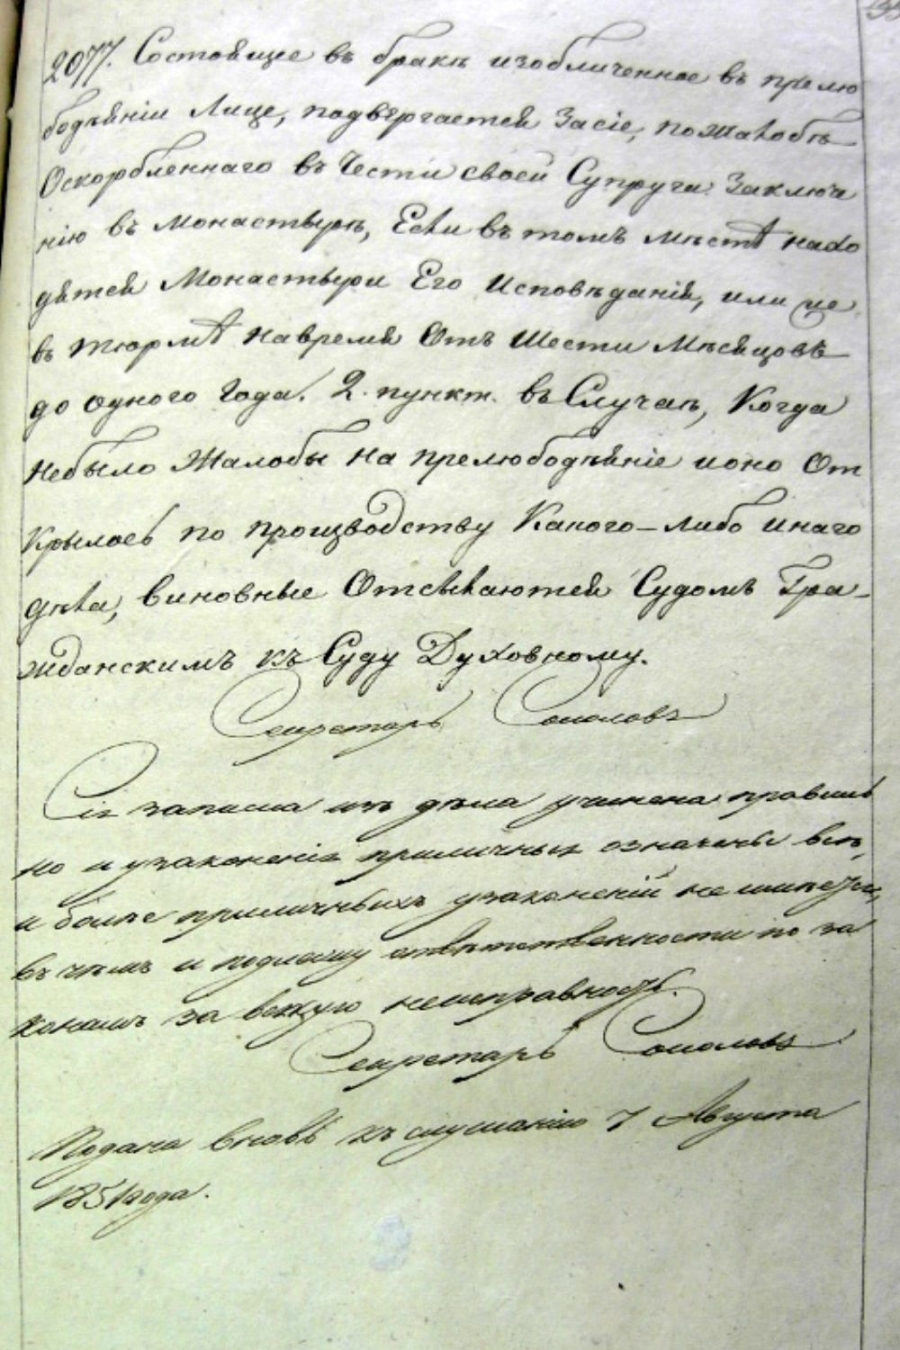 2077. Состоящее въ бракѣ изобличенное въ прелю
бодѣяніи Лице, подвергается За сіе, по жалобѣ
Оскорбленнаго въ Чести своей Супруга Заключе
нію въ монастырѣ, Если въ томъ мѣстѣ нахо
дятся Монастыри Его Исповѣданія, или же
въ тюрмѣ на время Отъ Шести Мѣсяцовъ
до одного Года. 2. пункт. въ Случаѣ, Когда
небыло Жалобы на прелюбодѣяніе и оно От
Крылось по производству Какого-либо инаго
дѣла, Виновные Отсылаются Судомъ Гра-
жданскимъ къ Суду Духовному.
Секретарь Соколовъ
Сія записка изъ дѣла учинена правиль
но и узаконенія приличныя означены всѣ,
и болѣе приличныхъ узаконеній не имѣется,
въ чемъ и подлежу ответственности по за
конамъ за всякую неисправность.
Секретарь Соколовъ
Подана вновь къ слушанію 7 Августа
1851 года.